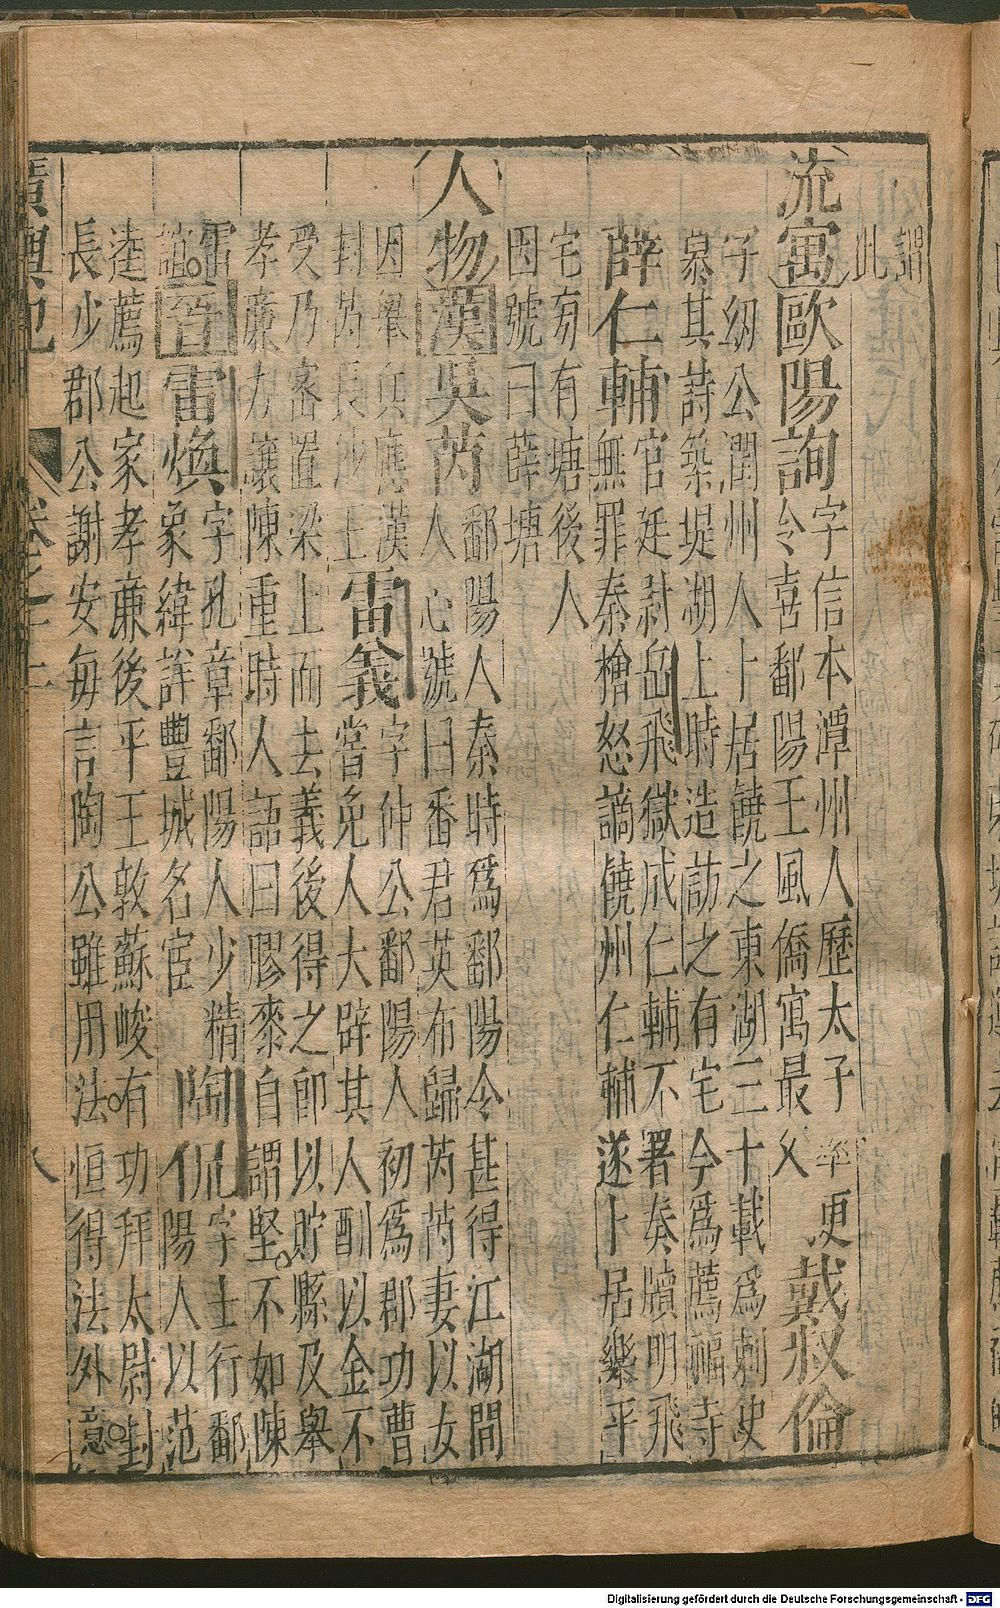 謂
此
流寓歐陽詢字信本潭州人歷太子率更
令喜鄱陽王風僑寓最久戴叔倫
字幼公潤州人卜居饒之東湖三十載爲刺史
慕其詩築堤湖上時造訪之有宅今爲薦福寺
薛仁輔官廷尉岳飛獄成仁輔不署奏牘明飛
無罪秦檜怒謫饒州仁輔遂卜居樂平
宅旁有塘後人
因號曰薛塘
人物漢吳芮鄱陽人秦時爲鄱陽令甚得江湖間
人心號曰番君英布歸芮芮妻以女
因舉兵應漢
封芮長沙王雷義字仲公鄱陽人初爲郡功曹
嘗免人大辟其人酬以金不
受乃密置梁上而去義後得之卽以貯縣及舉
孝廉力讓陳重時人語曰膠漆自謂堅不如陳
雷
誼晉雷煥字孔章鄱陽人少精
象緯詳豐城名宦陶侃字士行鄱
陽人以范
逵薦起家孝廉後平王敦蘇峻有功拜太尉封
長少郡公謝安每言陶公雖用法恒得法外意
廣輿記
卷之十二
八
Digitalisierung gefördert durch die Deutsche Forschungsgemeinschaft - DFG